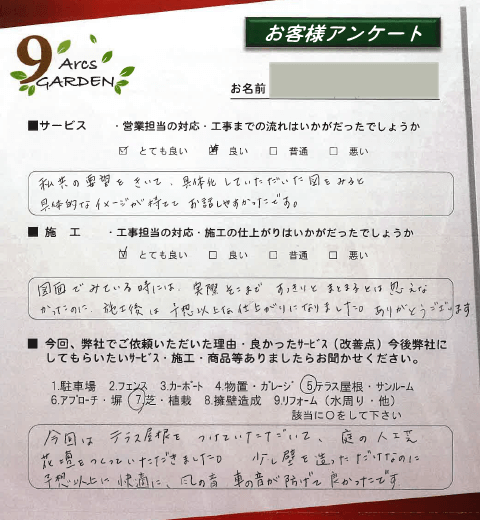 9 Arcs GARDEN
お客様アンケート
お名前
■サービス ・営業担当の対応・工事までの流れはいかがだったでしょうか
☑ とても良い ☑ 良い □ 普通 □ 悪い
私共の要望をきいて、具体化していただいた図をみると
具体的なイメージが持てて お話しやすかったです。
■施 工 ・工事担当の対応・施工の仕上がりはいかがだったでしょうか
☑ とても良い □ 良い □ 普通 □ 悪い
図面でみている時には、実際そこまで すっきりと まとまるとは思えな
かったのに、施工後は予想以上な仕上がりになりました。ありがとうございます
■今回、弊社でご依頼いただいた理由・良かったｻｰﾋﾞｽ（改善点）今後弊社に
してもらいたいｻｰﾋﾞｽ・施工・商品等ありましたらお聞かせください。
1.駐車場 2.フェンス 3.カーポート 4.物置・ガレージ ⑤テラス屋根・サンルーム
6.アプローチ・塀 ⑦芝・植栽 8.擁壁造成 9.リフォーム（水周り・他）
該当に○をして下さい
今回は テラス屋根を つけていただいて、庭の人工芝
花壇をつくっていただきました。 少し壁を造っただけなのに
予想以上に快適に、風の音 車の音が防げて良かったです